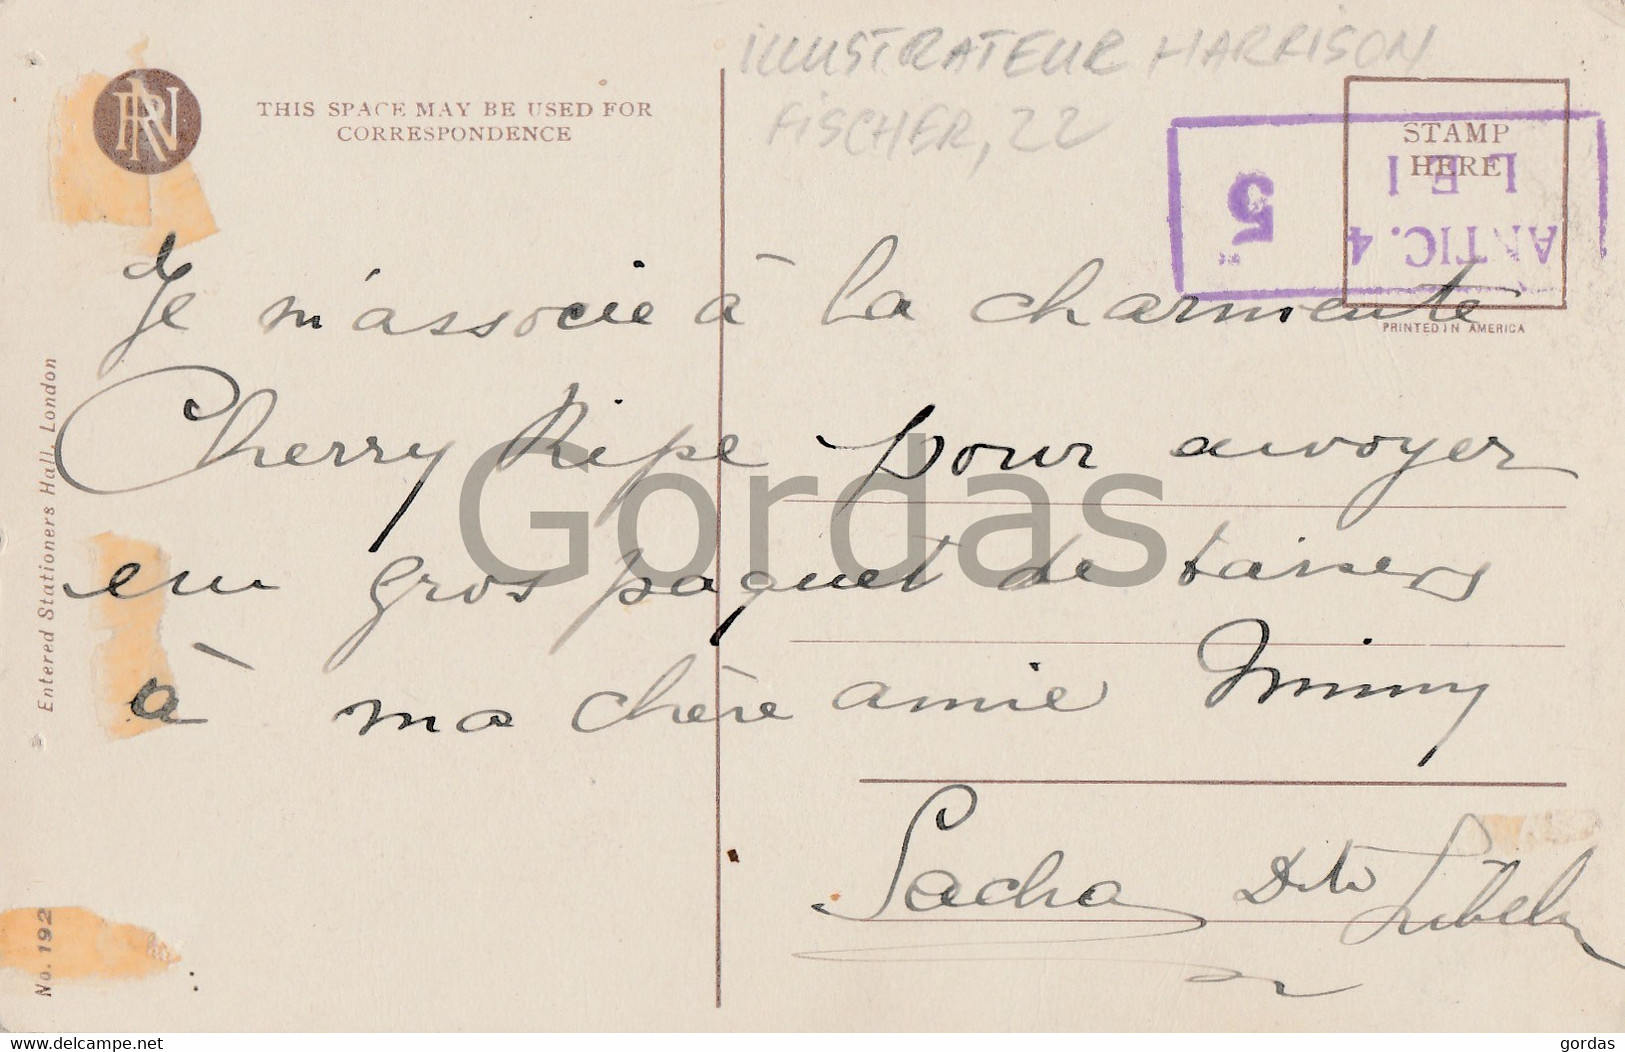 ILLUSTRATEUR HARRISON
FISCHER, 22
RN
THIS SPACE MAY BE USED FOR
CORRESPONDENCE
STAMP
HERE
PRINTED IN AMERICA
ANTIC. 4
LEI
5
Je m'associe à la charmente
Cherry Ripe pour anvoyer
em gros paquet de baisers
à ma chère amie Mimy
Sacha
Entered Stationers Hall, London
No. 192
Gordas
delcampe.net
gordas